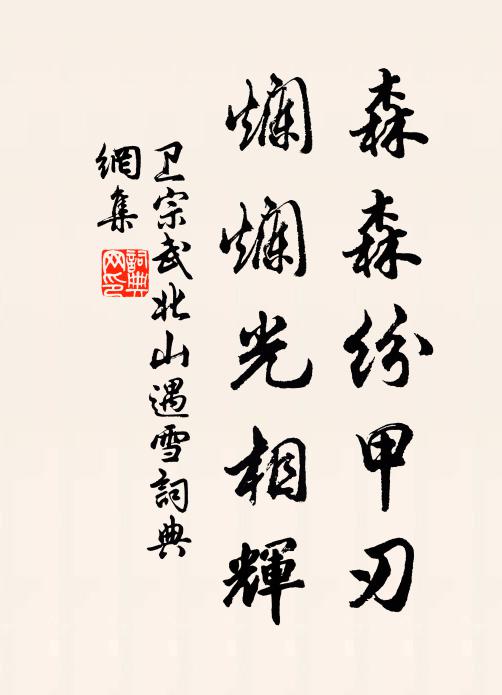 森森纷甲刃
爛爛光相輝
卫宗武北山遇雪詞典
網集
詞典
网印